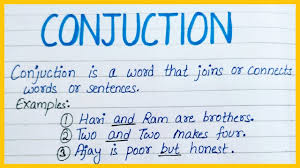 CONJUCTION
Conjuction is a word that joins or connects
words or sentences.
Examples:
① Hari and Ram are brothers.
② Two and Two makes four.
③ Ajay is poor but honest.